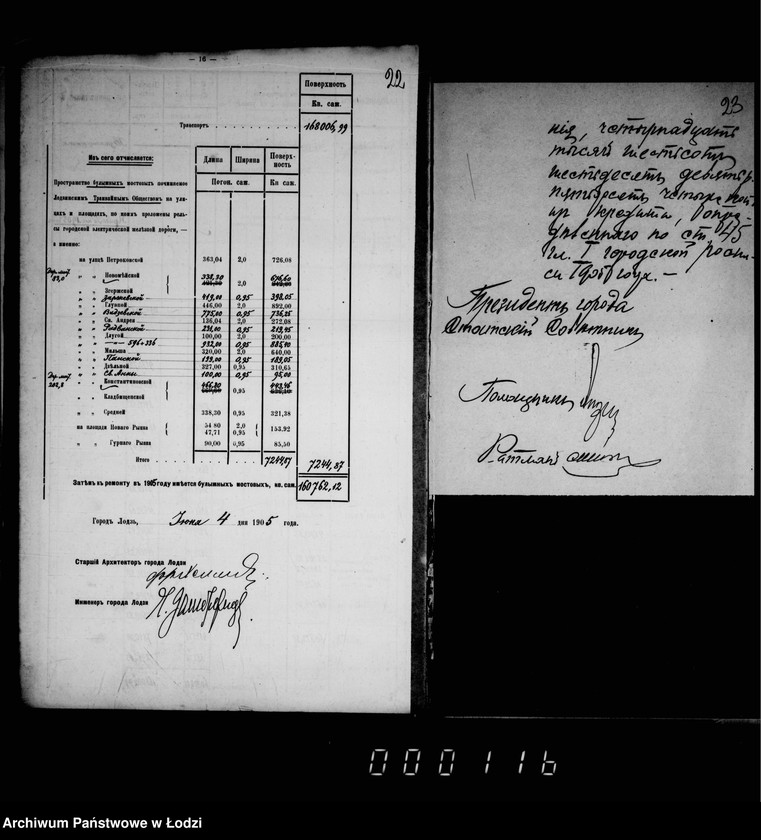 — 16 —
22
Поверхность
Кв. саж.
Транспортъ . . . . . . . . . . . 168006,99
Изъ сего отчисляется:
Длина Ширина Поверх-ность
Погон. саж. Кв саж.
Пространство булыжныхъ мостовыхъ починяемое
Лодзинскимъ Трамвайнымъ Обществомъ на ули-
цахъ и площадяхъ, по коимъ проложены рель-
сы городской электрической желѣзной дороги, —
а именно:
на улицѣ Петроковской 363,04 2,0 726,08
„ „ Новомѣйской 338,30 2,0 676,60
„ „ Згержской
„ „ Заржевской 419,00 0,95 398,05
„ „ Глувной 446,00 2,0 892,00
„ „ Видзевской 775,00 0,95 736,25
„ „ Св. Андрея 136,04 2,0 272,08
„ „ Радванской 231,00 0,95 219,45
„ „ Другой 100,00 2,0 200,00
596+336 932,00 0,95 885,40
„ „ Мильша 320,00 2,0 640,00
„ „ Панской 199,00 0,95 189,05
„ „ Дѣльной 327,00 0,95 310,65
„ „ Св. Анны 100,00 0,95 95,00
„ „ Константиновской 466,80 0,95 443,46
„ „ Кладбищенской
„ „ Средней 338,30 0,95 321,38
на площади Новаго Рынка 54 80 2,0 153,92
47,71 0,95
„ „ Гурнаго Рынка 90,00 0,95 85,50
Итого . . . . 7244,87 7244,87
Затѣмъ къ ремонту въ 1905 году имѣется булыжныхъ мостовыхъ, кв. саж. 160762,12
Городъ Лодзь, Іюня 4 дня 1905 года.
Старшій Архитекторъ города Лодзи
Инженеръ города Лодзи
23
нія, четырнадцать
тысячъ шестьсотъ
шестьдесятъ девять р.
пятьдесятъ четыре коп.
изъ кредита, опре-
дѣленнаго по ст. 45
гл. I городской роспи-
си 1905 года. —
Президентъ города
Статскій Совѣтникъ
Ратманъ
000116
Archiwum Państwowe w Łodzi